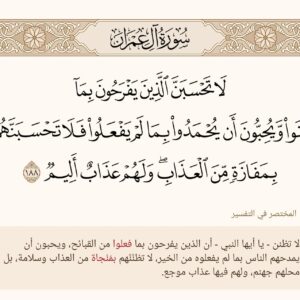 سُورَةُ آلِ عِمْرَان
لَا تَحْسَبَنَّ الَّذِينَ يَفْرَحُونَ بِمَا
وَّيُحِبُّونَ أَن يُحْمَدُوا بِمَا لَمْ يَفْعَلُوا فَلَا تَحْسَبَنَّهُم
بِمَفَازَةٍ مِّنَ الْعَذَابِ ۖ وَلَهُمْ عَذَابٌ أَلِيمٌ ١٨٨
المختصر في التفسير
لا تظنن - يا أيها النبي - أن الذين يفرحون بما فعلوا من القبائح، ويحبون أن
يمدحهم الناس بما لم يفعلوه من الخير، لا تظنَنّهم بمَنْجاة من العذاب وسلامة، بل
محلهم جهنم، ولهم فيها عذاب موجع.